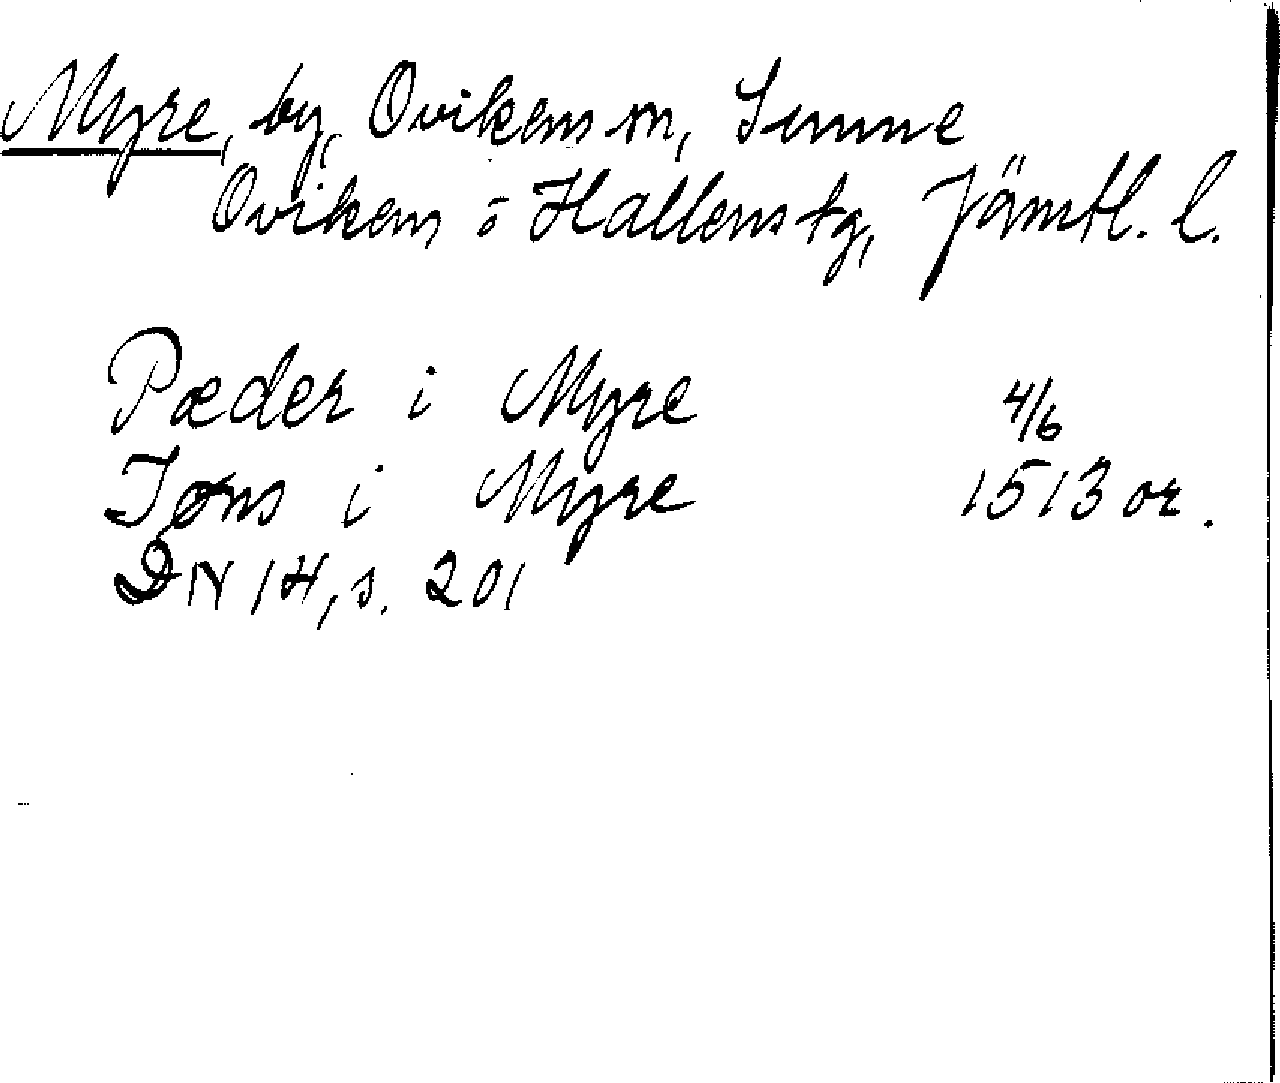 Myre, by, Ovikens sn, Sunne
Oviken o Hallens tg, Jämtl. l.
Pæder i Myre 4/6
Jøns i Myre 1513 or.
DN 14, s. 201